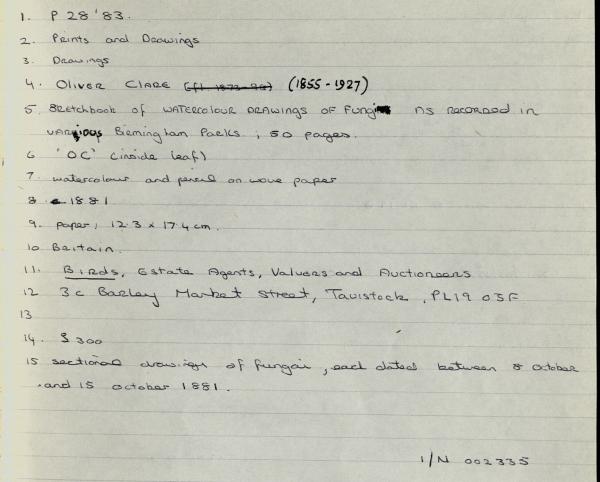 1. P 28 '83.
2. Prints and Drawings
3. Drawings
4. Oliver Clare (fl 1873-98) (1855-1927)
5. Sketchbook of WATERCOLOUR DRAWINGS OF FUNGI AS RECORDED in
various Birmingham Parks ; 50 pages.
6 'OC' (inside leaf)
7. watercolour and pencil on wove paper
8 1881
9. paper; 12.3 x 17.4 cm.
10 Britain.
11. Birds, Estate Agents, Valuers and Auctioneers
12 3c Barley Market Street, Tavistock, PL19 0SF
13
14. £ 300
15 sectional drawings of fungai, each dated between 8 October
and 15 october 1881.
1/N 002335